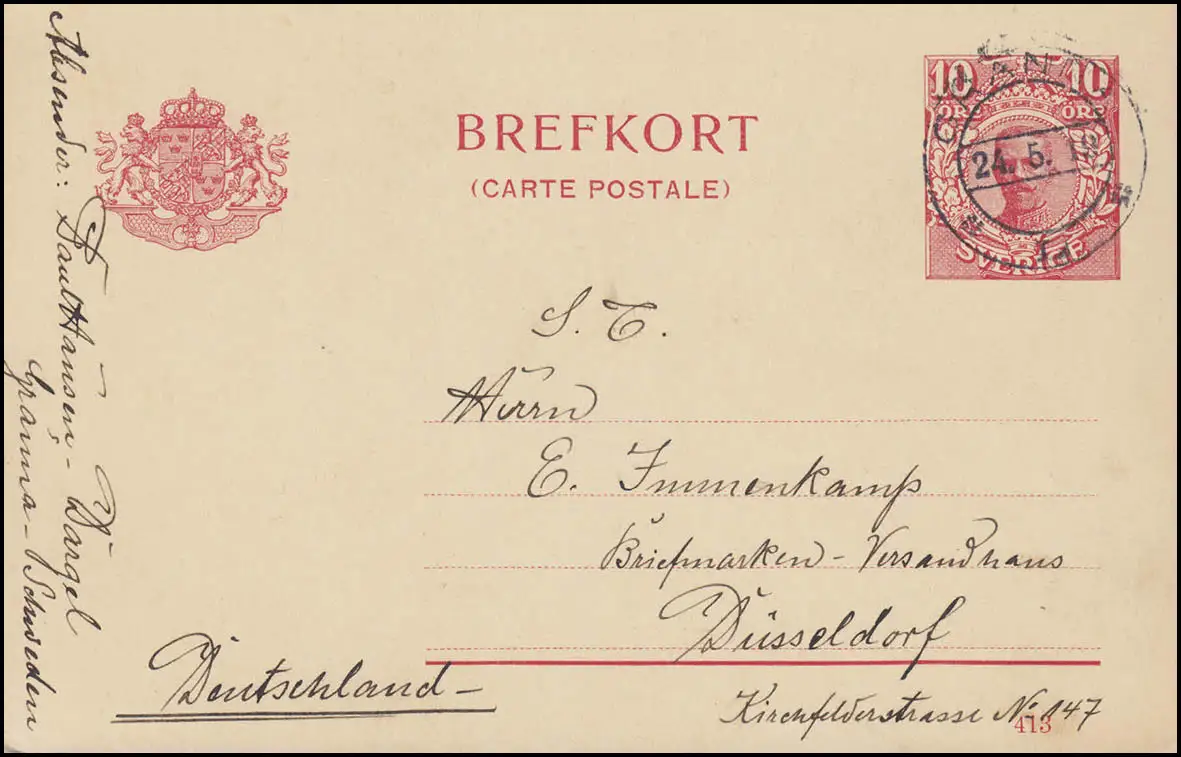 BREFKORT
(CARTE POSTALE)
10 10
ÖRE ÖRE
SVERIGE
24. 5.
Absender: Paul Hansen - Dargel
Gränna - Schweden
S. T.
Herrn
E. Immenkamp
Briefmarken - Versandhaus
Düsseldorf
Deutschland -
Kirchfelderstrasse No 147
413